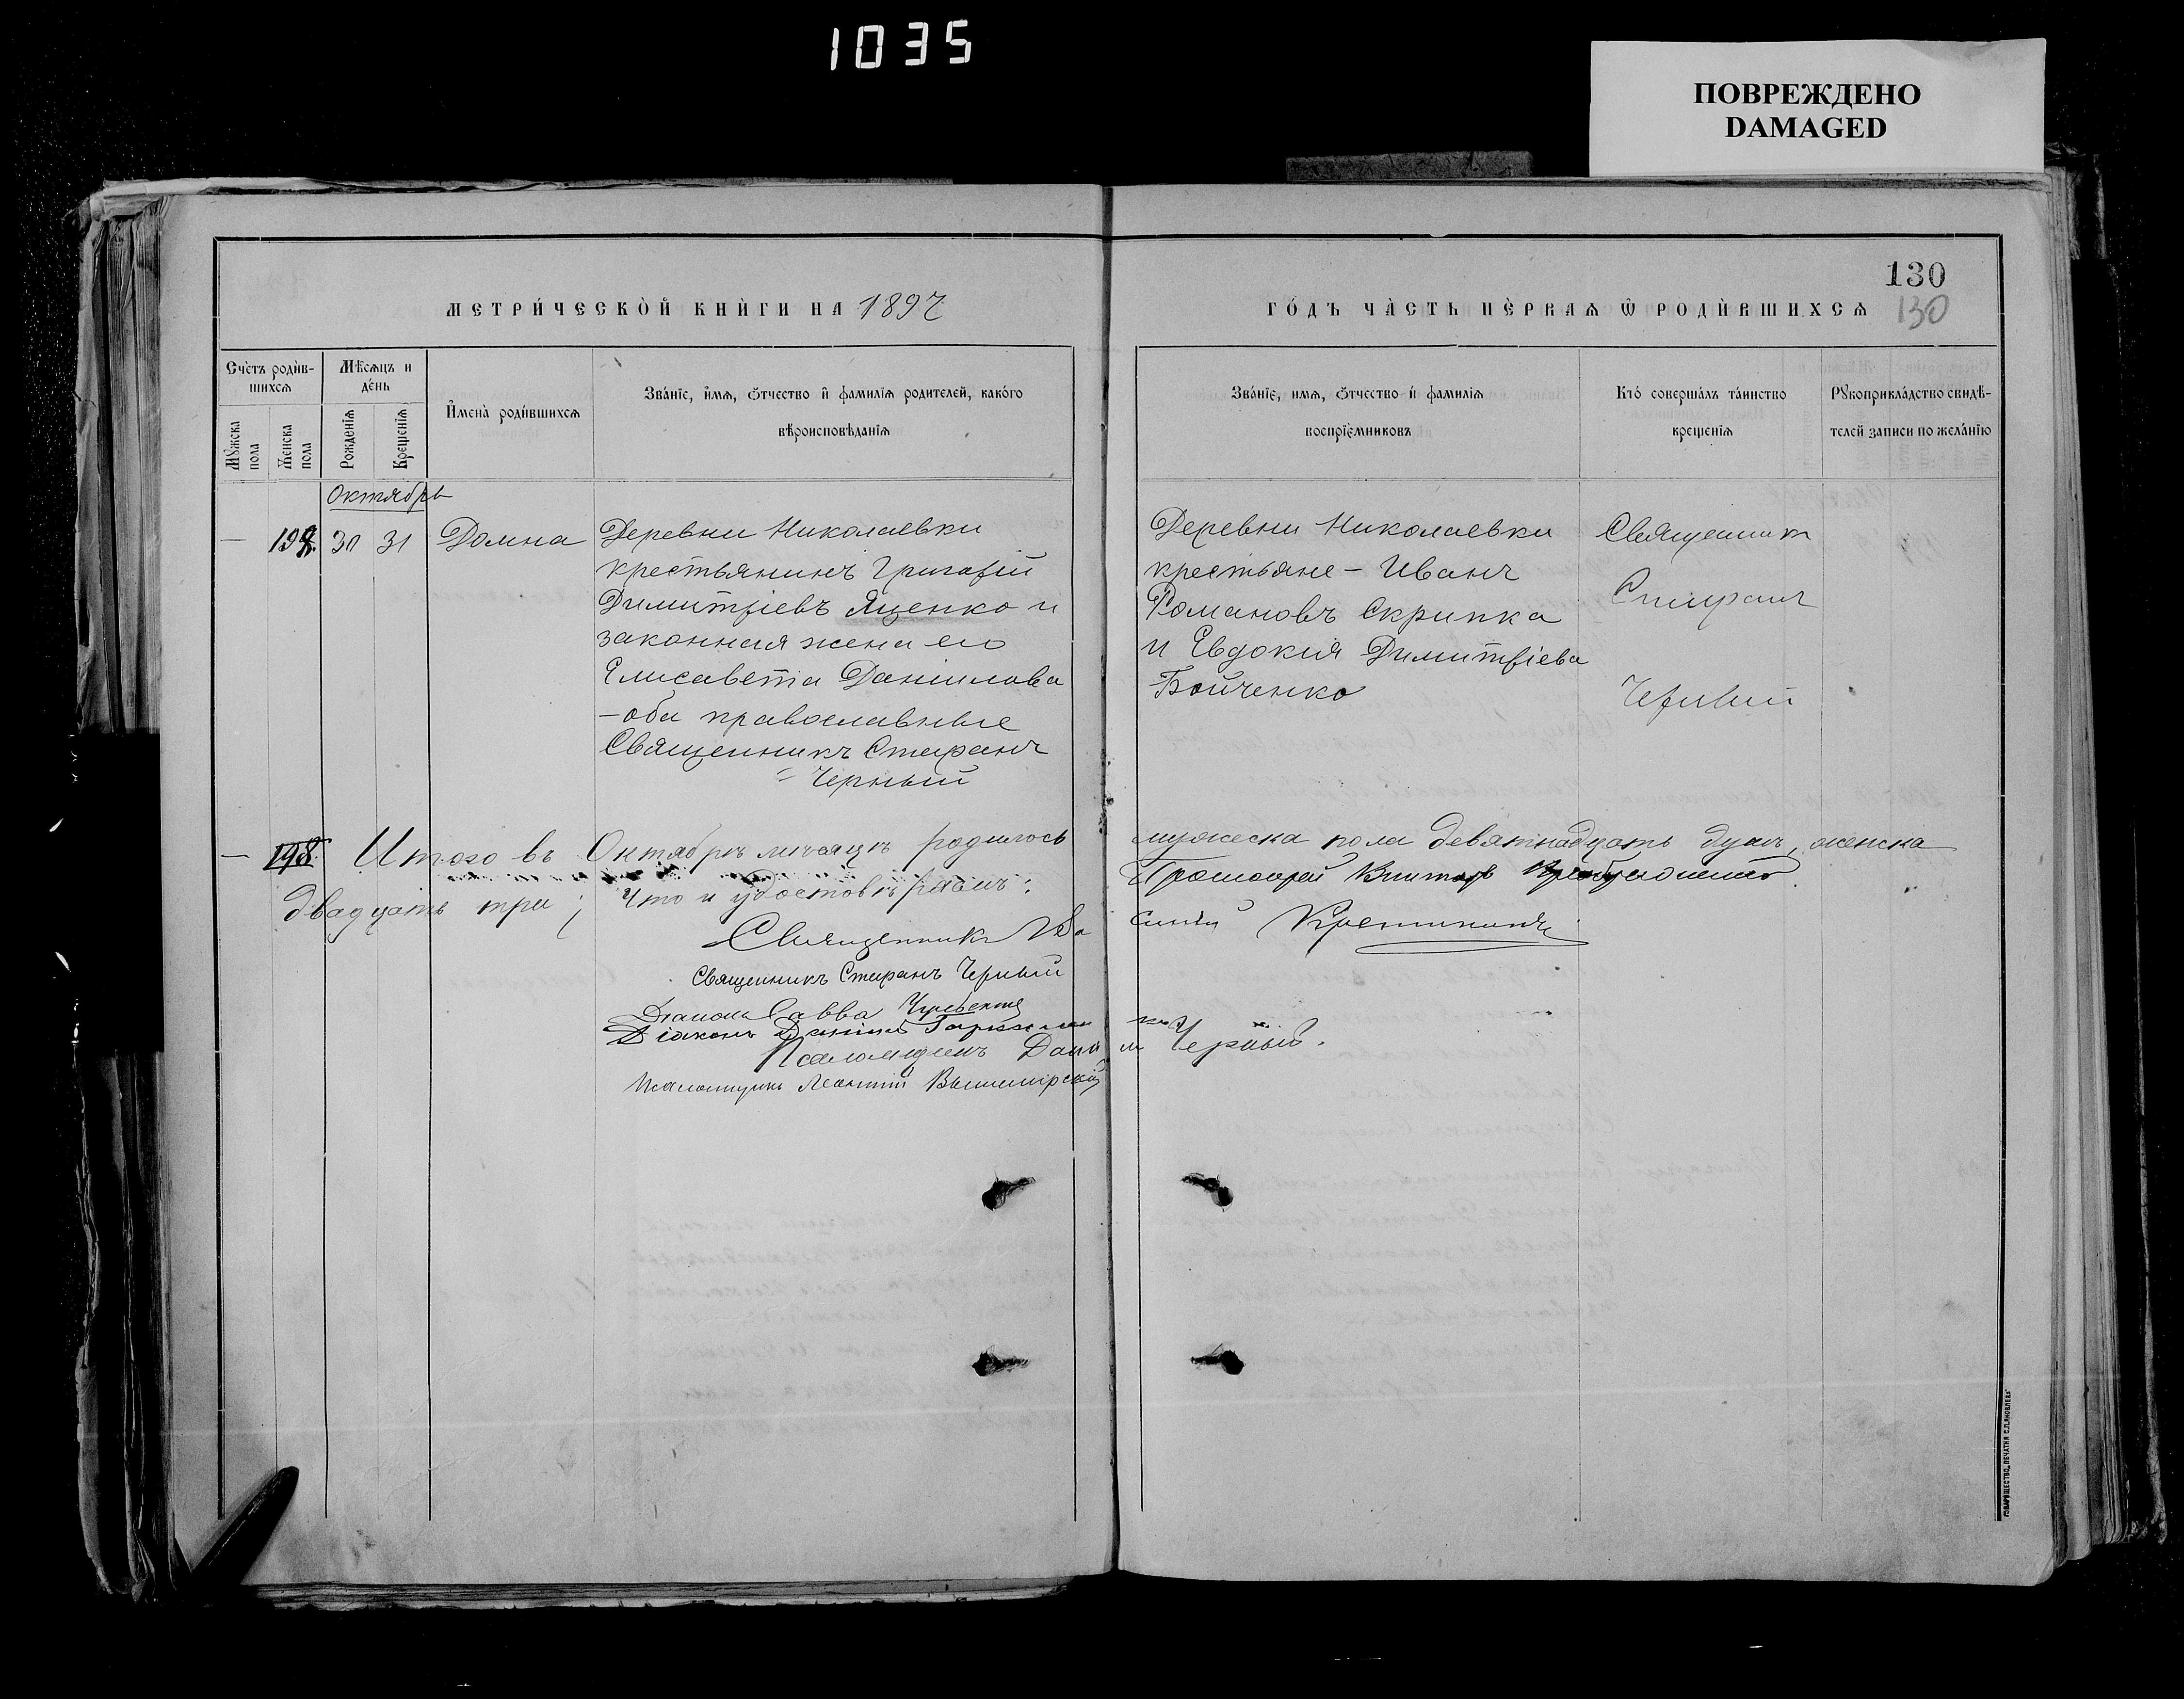 1035
ПОВРЕЖДЕНО
DAMAGED
130
130
МЕТРИ́ЧЕСКОЙ КНИ́ГИ НА 1897
ГО́ДЪ ЧА́СТЬ ПЕ́РВАѦ Ѿ РОДИ́ВШИХСѦ
Сче́тъ роди́в-
шихсѧ
Мѣ́сѧцъ и
де́нь
Мꙋжска
пола
Женска
пола
Рожденїѧ
Крещенїѧ
И҆мена̀ роди́вшихсѧ
Зва́нїе, и҆мѧ, ѻ҆тчество и҆ фамилїѧ родителей, како́го
вѣроисповѣданїѧ
Зва́нїе, имѧ, ѻ҆тчество и҆ фамилїѧ
воспрїе́мниковъ
Кто̀ соверша́лъ та́инство
крещенїѧ
Рꙋкоприкла́дство свидѣ́-
телей записи по жела́нїю
Октябрь
— 198. 30 31 Домна
Деревни Николаевки
крестьянинъ Григорій
Димитріевъ Яценко и
законная жена его
Елисавета Даніилова
— оба православные
Священникъ Стефанъ
Черный
Деревни Николаевки
крестьяне — Иванъ
Романовъ Скрипка
и Евдокия Димитріева
Бойченко
Священникъ
Стефанъ
Черный
— 198. Итого въ Октябрѣ мѣсяцѣ родилось мужеска пола девятнадцать душъ, женска
двадцать три; Что и удостовѣряемъ: Протоіерей Викторъ
Священникъ
Священникъ Стефанъ Черный
Діаконъ Савва
Діаконъ Даніилъ
Псаломщикъ Даніилъ Черный.
Псаломщикъ Леонтій Вышемірскій
ТОВАРИЩЕСТВО „ПЕЧАТНЯ С.П.ЯКОВЛЕВА"